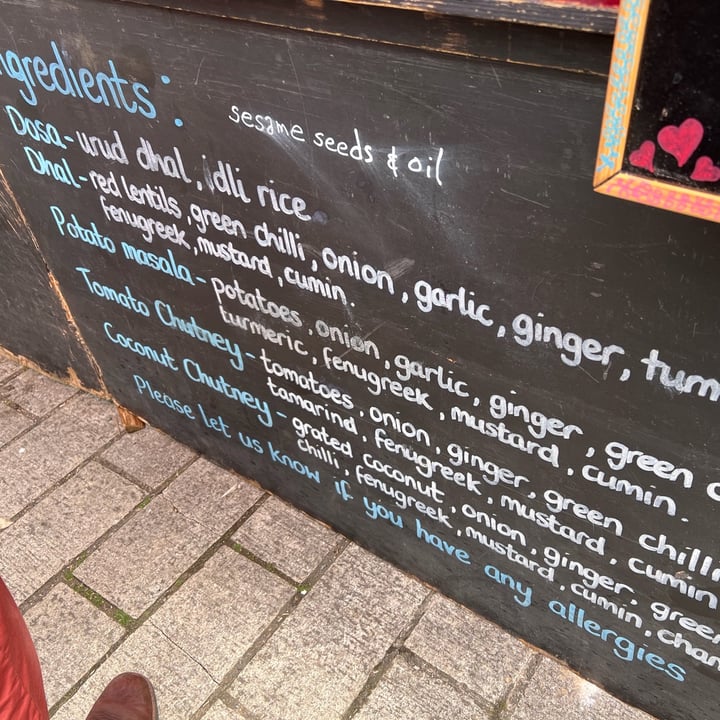 ngredients :
sesame seeds & oil
Dosa - urud dhal, idli rice
Dhal - red lentils, green chilli, onion, garlic, ginger, tum
fenugreek, mustard, cumin.
Potato masala - potatoes, onion, garlic, ginger, green c
turmeric, fenugreek, mustard, cumin.
Tomato Chutney - tomatoes, onion, ginger, green chilli
tamarind, fenugreek, mustard, cumin
Coconut Chutney - grated coconut, onion, ginger, green
chilli, fenugreek, mustard, cumin, chan
Please let us know if you have any allergies